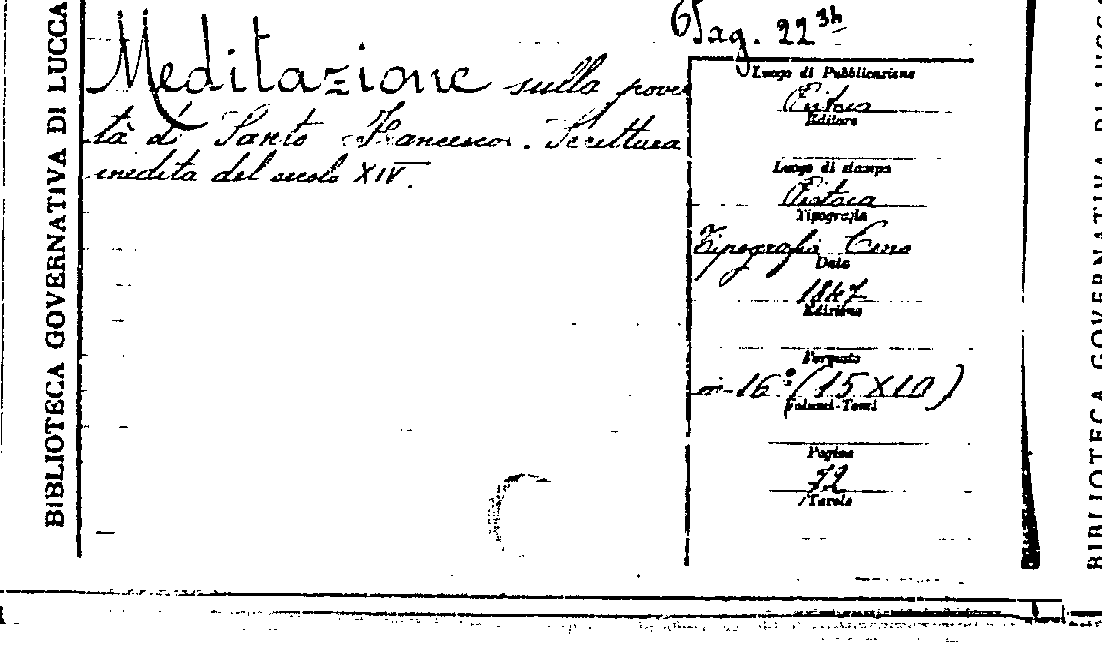 BIBLIOTECA GOVERNATIVA DI LUCCA
Pag. 22
Meditazione sulla pover
tà di Santo Francesco. Scrittura
inedita del secolo XIV.
Luogo di Pubblicazione
Editore
Luogo di stampa
Pistoia
Tipografia
Tipografia Cino
Data
1847
Edizione
Formato
in-16° (15X10)
Volumi-Tomi
Pagine
72
Tavole
BIBLIOTECA GOVERNATIVA DI LUCCA